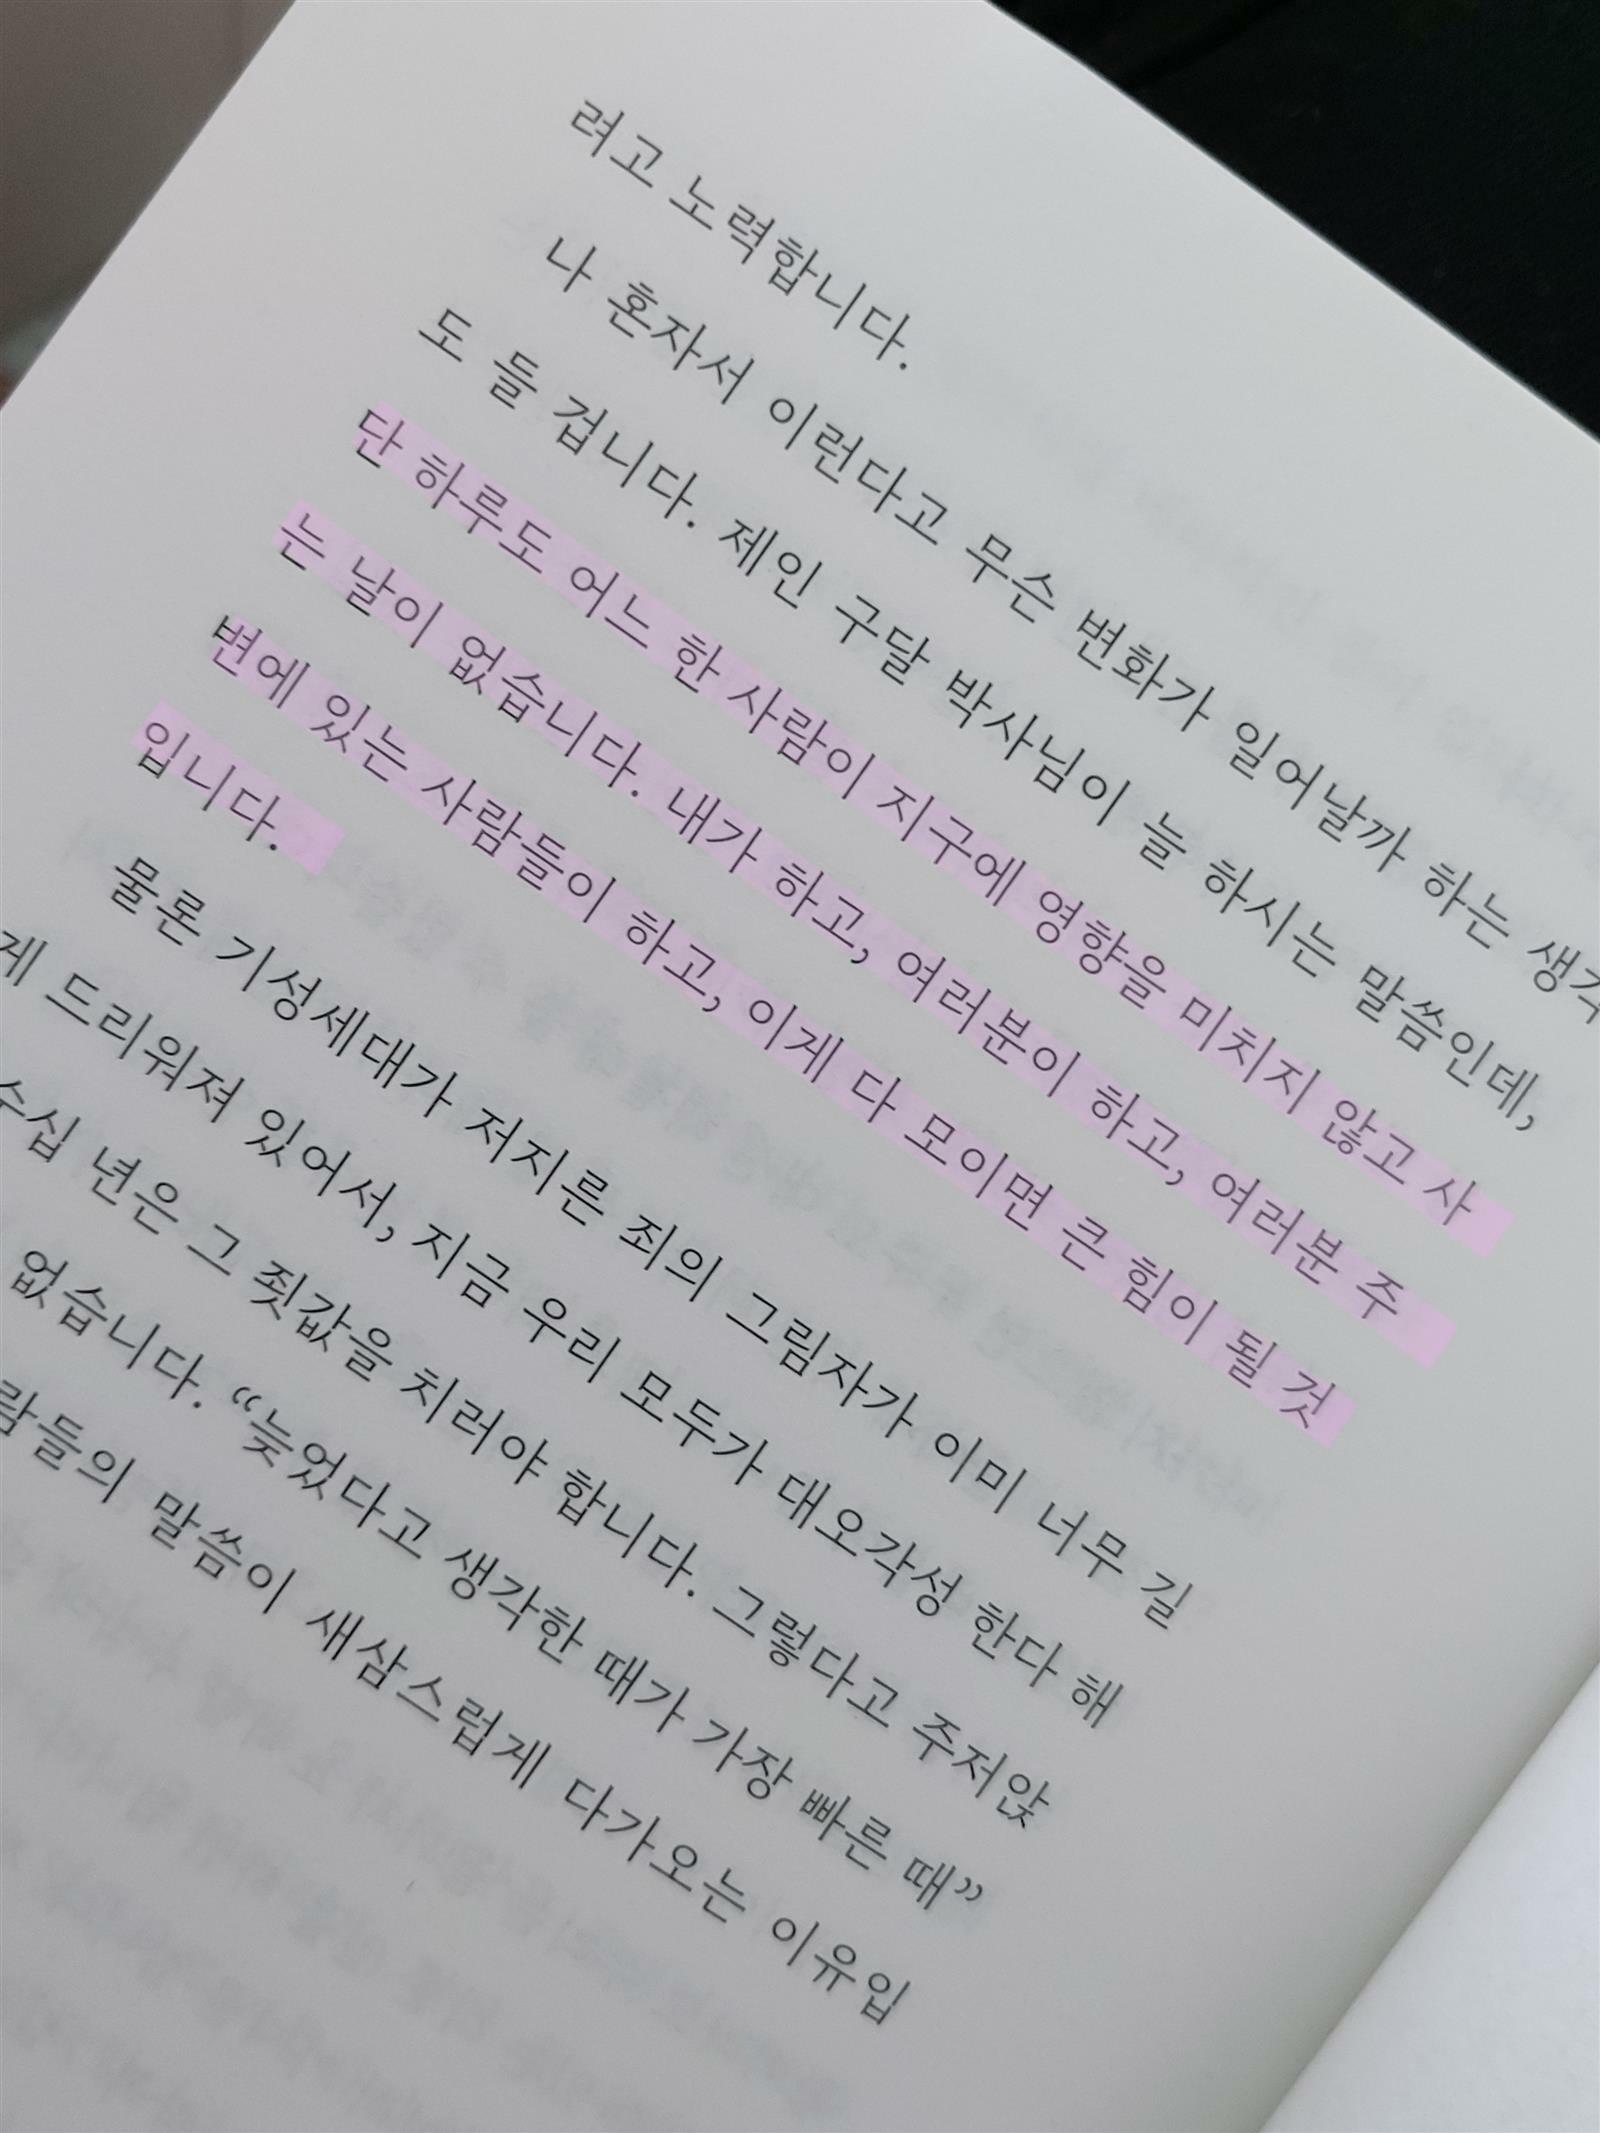 려고 노력합니다.
나 혼자서 이런다고 무슨 변화가 일어날까 하는 생각
도 들 겁니다. 제인 구달 박사님이 늘 하시는 말씀인데,
단 하루도 어느 한 사람이 지구에 영향을 미치지 않고 사
는 날이 없습니다. 내가 하고, 여러분이 하고, 여러분 주
변에 있는 사람들이 하고, 이게 다 모이면 큰 힘이 될 것
입니다.
물론 기성세대가 저지른 죄의 그림자가 이미 너무 길
게 드리워져 있어서, 지금 우리 모두가 대오각성 한다 해
수십 년은 그 죗값을 치러야 합니다. 그렇다고 주저앉
없습니다. “늦었다고 생각한 때가 가장 빠른 때”
람들의 말씀이 새삼스럽게 다가오는 이유입